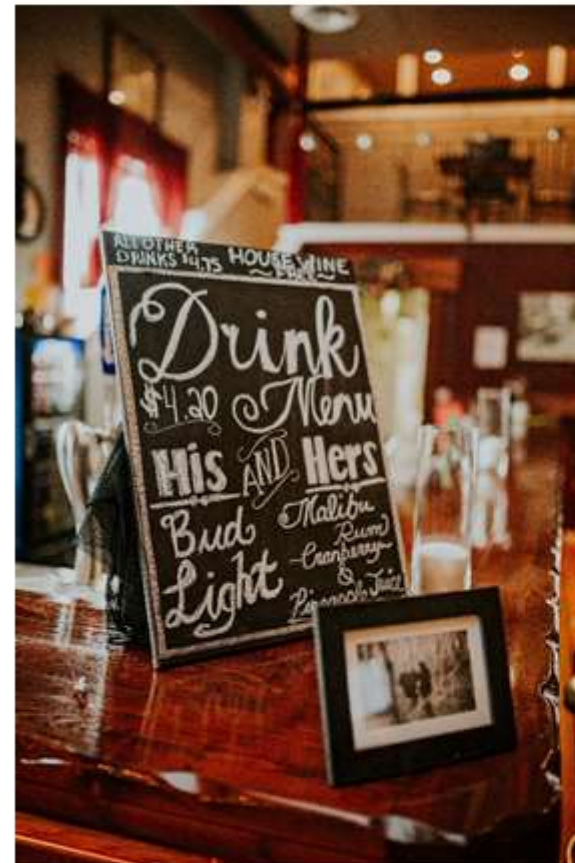 ALL OTHER
DRINKS $4.75
HOUSE WINE
FREE
Drink
$4.20 Menu
His AND Hers
Bud
Light
Malibu
Rum
Cranberry
&
Pineapple Juice